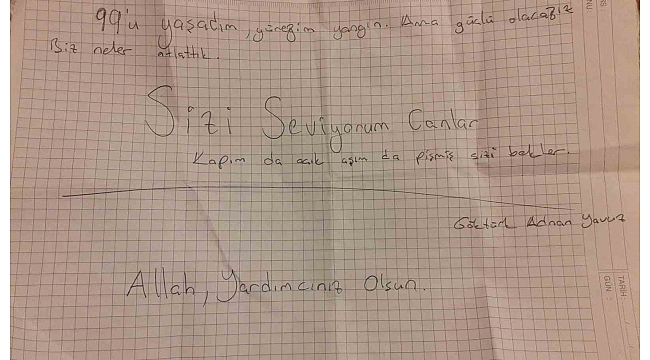 99'u yaşadım, yüreğim yangın. Ama güçlü olacağız
Biz neler atlattık.
Sizi Seviyorum Canlar
Kapım da açık aşım da pişmiş sizi bekler.
Göktürk Adnan Yavuz
Allah, Yardımcınız Olsun.
TARİH:
GÜN: